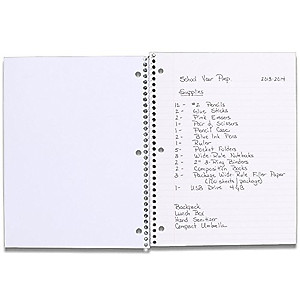 School Year Prep. 2013-2014
Supplies
12 - #2 Pencils
2 - Glue Sticks
2 - Pink Erasers
1 - Pair of Scissors
1 - Pencil Case
2 - Blue Ink Pens
1 - Ruler
5 - Pocket Folders
3 - Wide-Rule Notebooks
2 - 2" 3-Ring Binders
2 - Composition Books
3 - Package Wide Rule Filler Paper
(150 sheets/package)
1 - USB Drive 4GB
Backpack
Lunch Box
Hand Sanitizer
Compact Umbrella